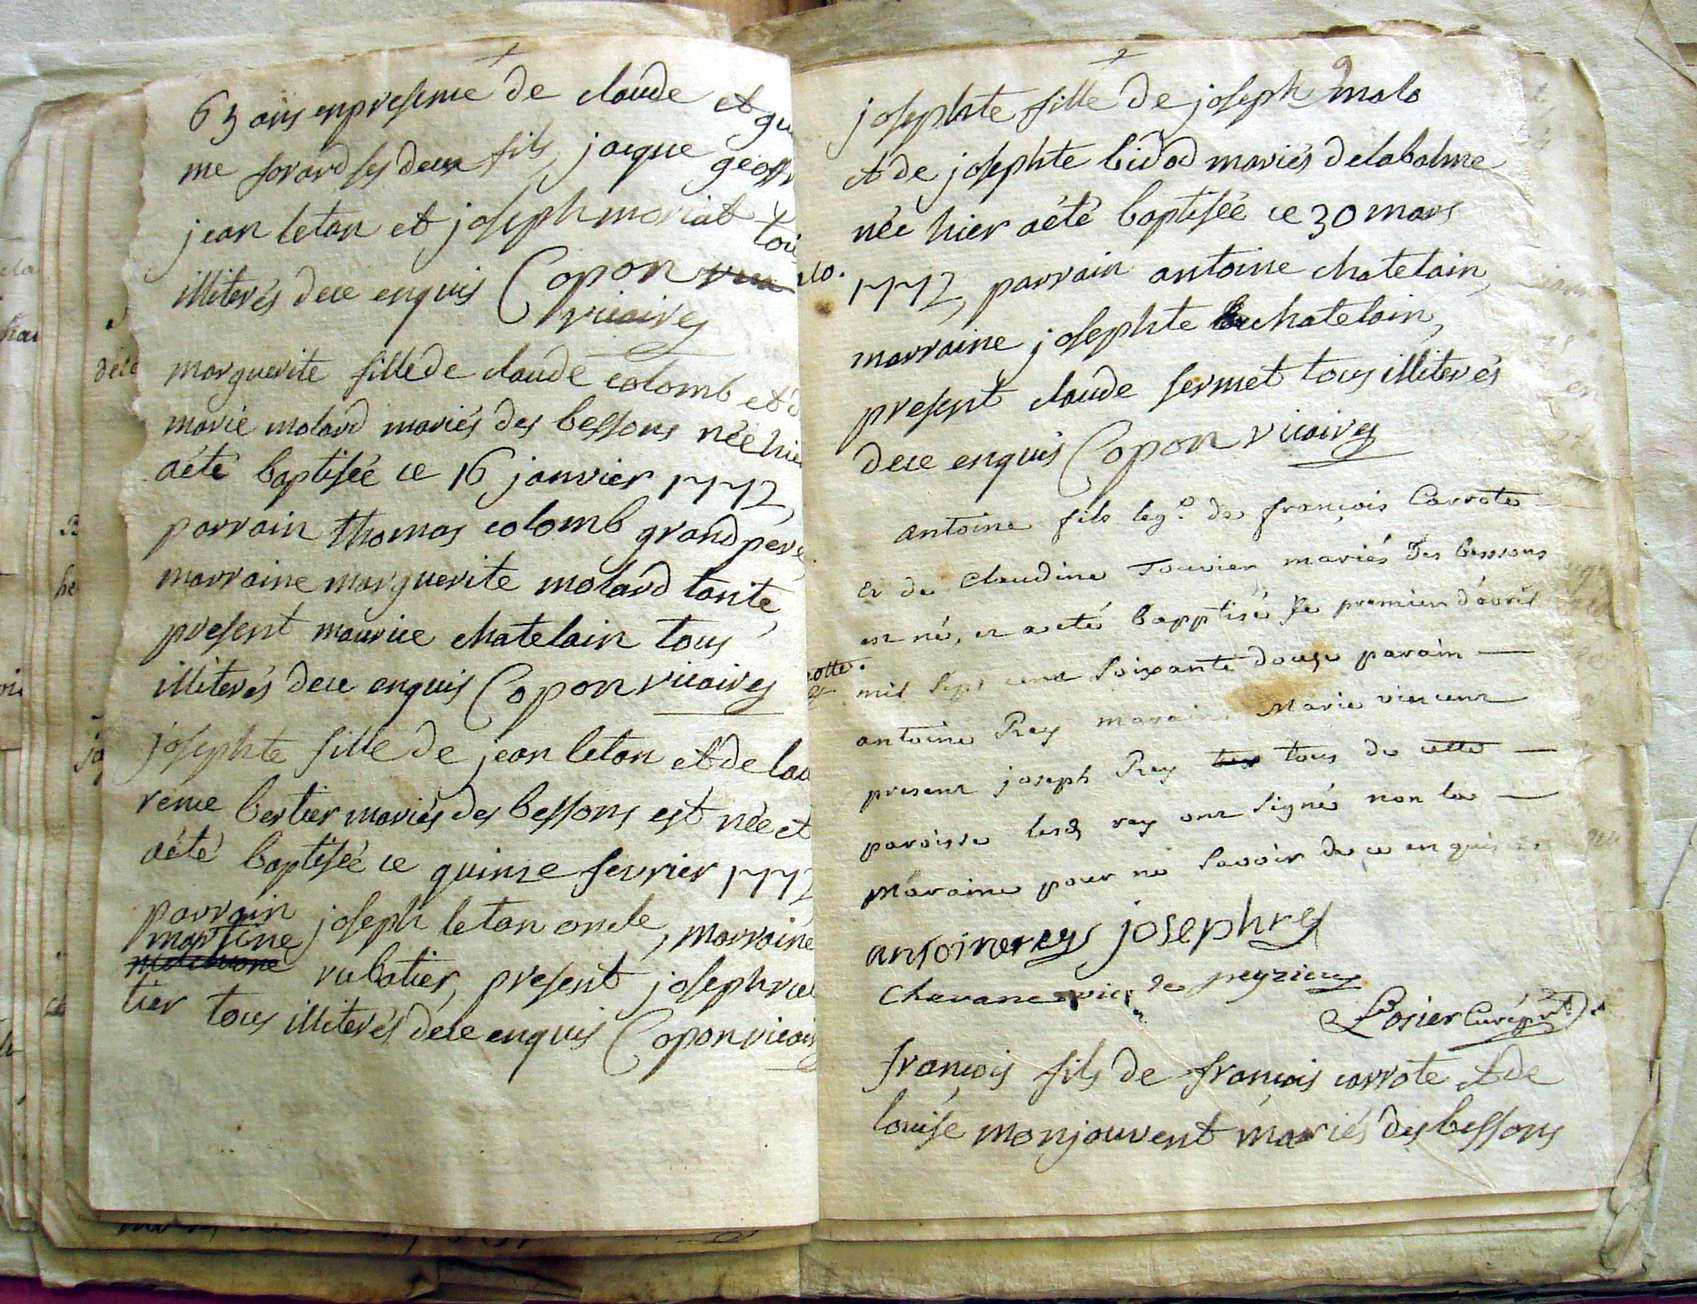 63 ans en presence de claude et gu
me forard ses deux fils, jacque geoff
jean letan et joseph moriat tou
illiterés de ce enquis Copon
vicaires
marguerite fille de claude colomb et d
marie molard mariés des bessons née hie
a été baptisée ce 16 janvier 1772,
parrain thomas colomb grand pere,
marraine marguerite molard tante,
present maurice chatelain tous
illiterés de ce enquis Copon vicaires
josephte fille de jean letan et de lau
rence bertier mariés des bessons est née et
a été baptisée ce quinze fevrier 1772
parrain joseph letan oncle, marraine
martine rubatier, present joseph ru
tier tous illiterés de ce enquis Copon vicair
2
josephte fille de joseph malo
et de josephte bidod mariés de la balme
née hier a été baptisée ce 30 mars
1772, parrain antoine chatelain,
marraine josephte chatelain,
present claude fermet tous illiterés
de ce enquis Copon vicaires
antoine fils leg.e de françois Carrote
et de Claudine Touvier mariés des bessons
est né, et a eté bapptisé le premier d'avril
mil sept cent soixante douze parain
antoine Rey maraine Marie vincent
present joseph Rey tous de cette
paroisse lesd rey ont signés non la
Maraine pour ne savoir de ce enquise
antoine reys joseph rey
Chavane vic. de peyzieux
Losier Curé
françois fils de françois carrote et de
louise monjouvent mariés des bessons